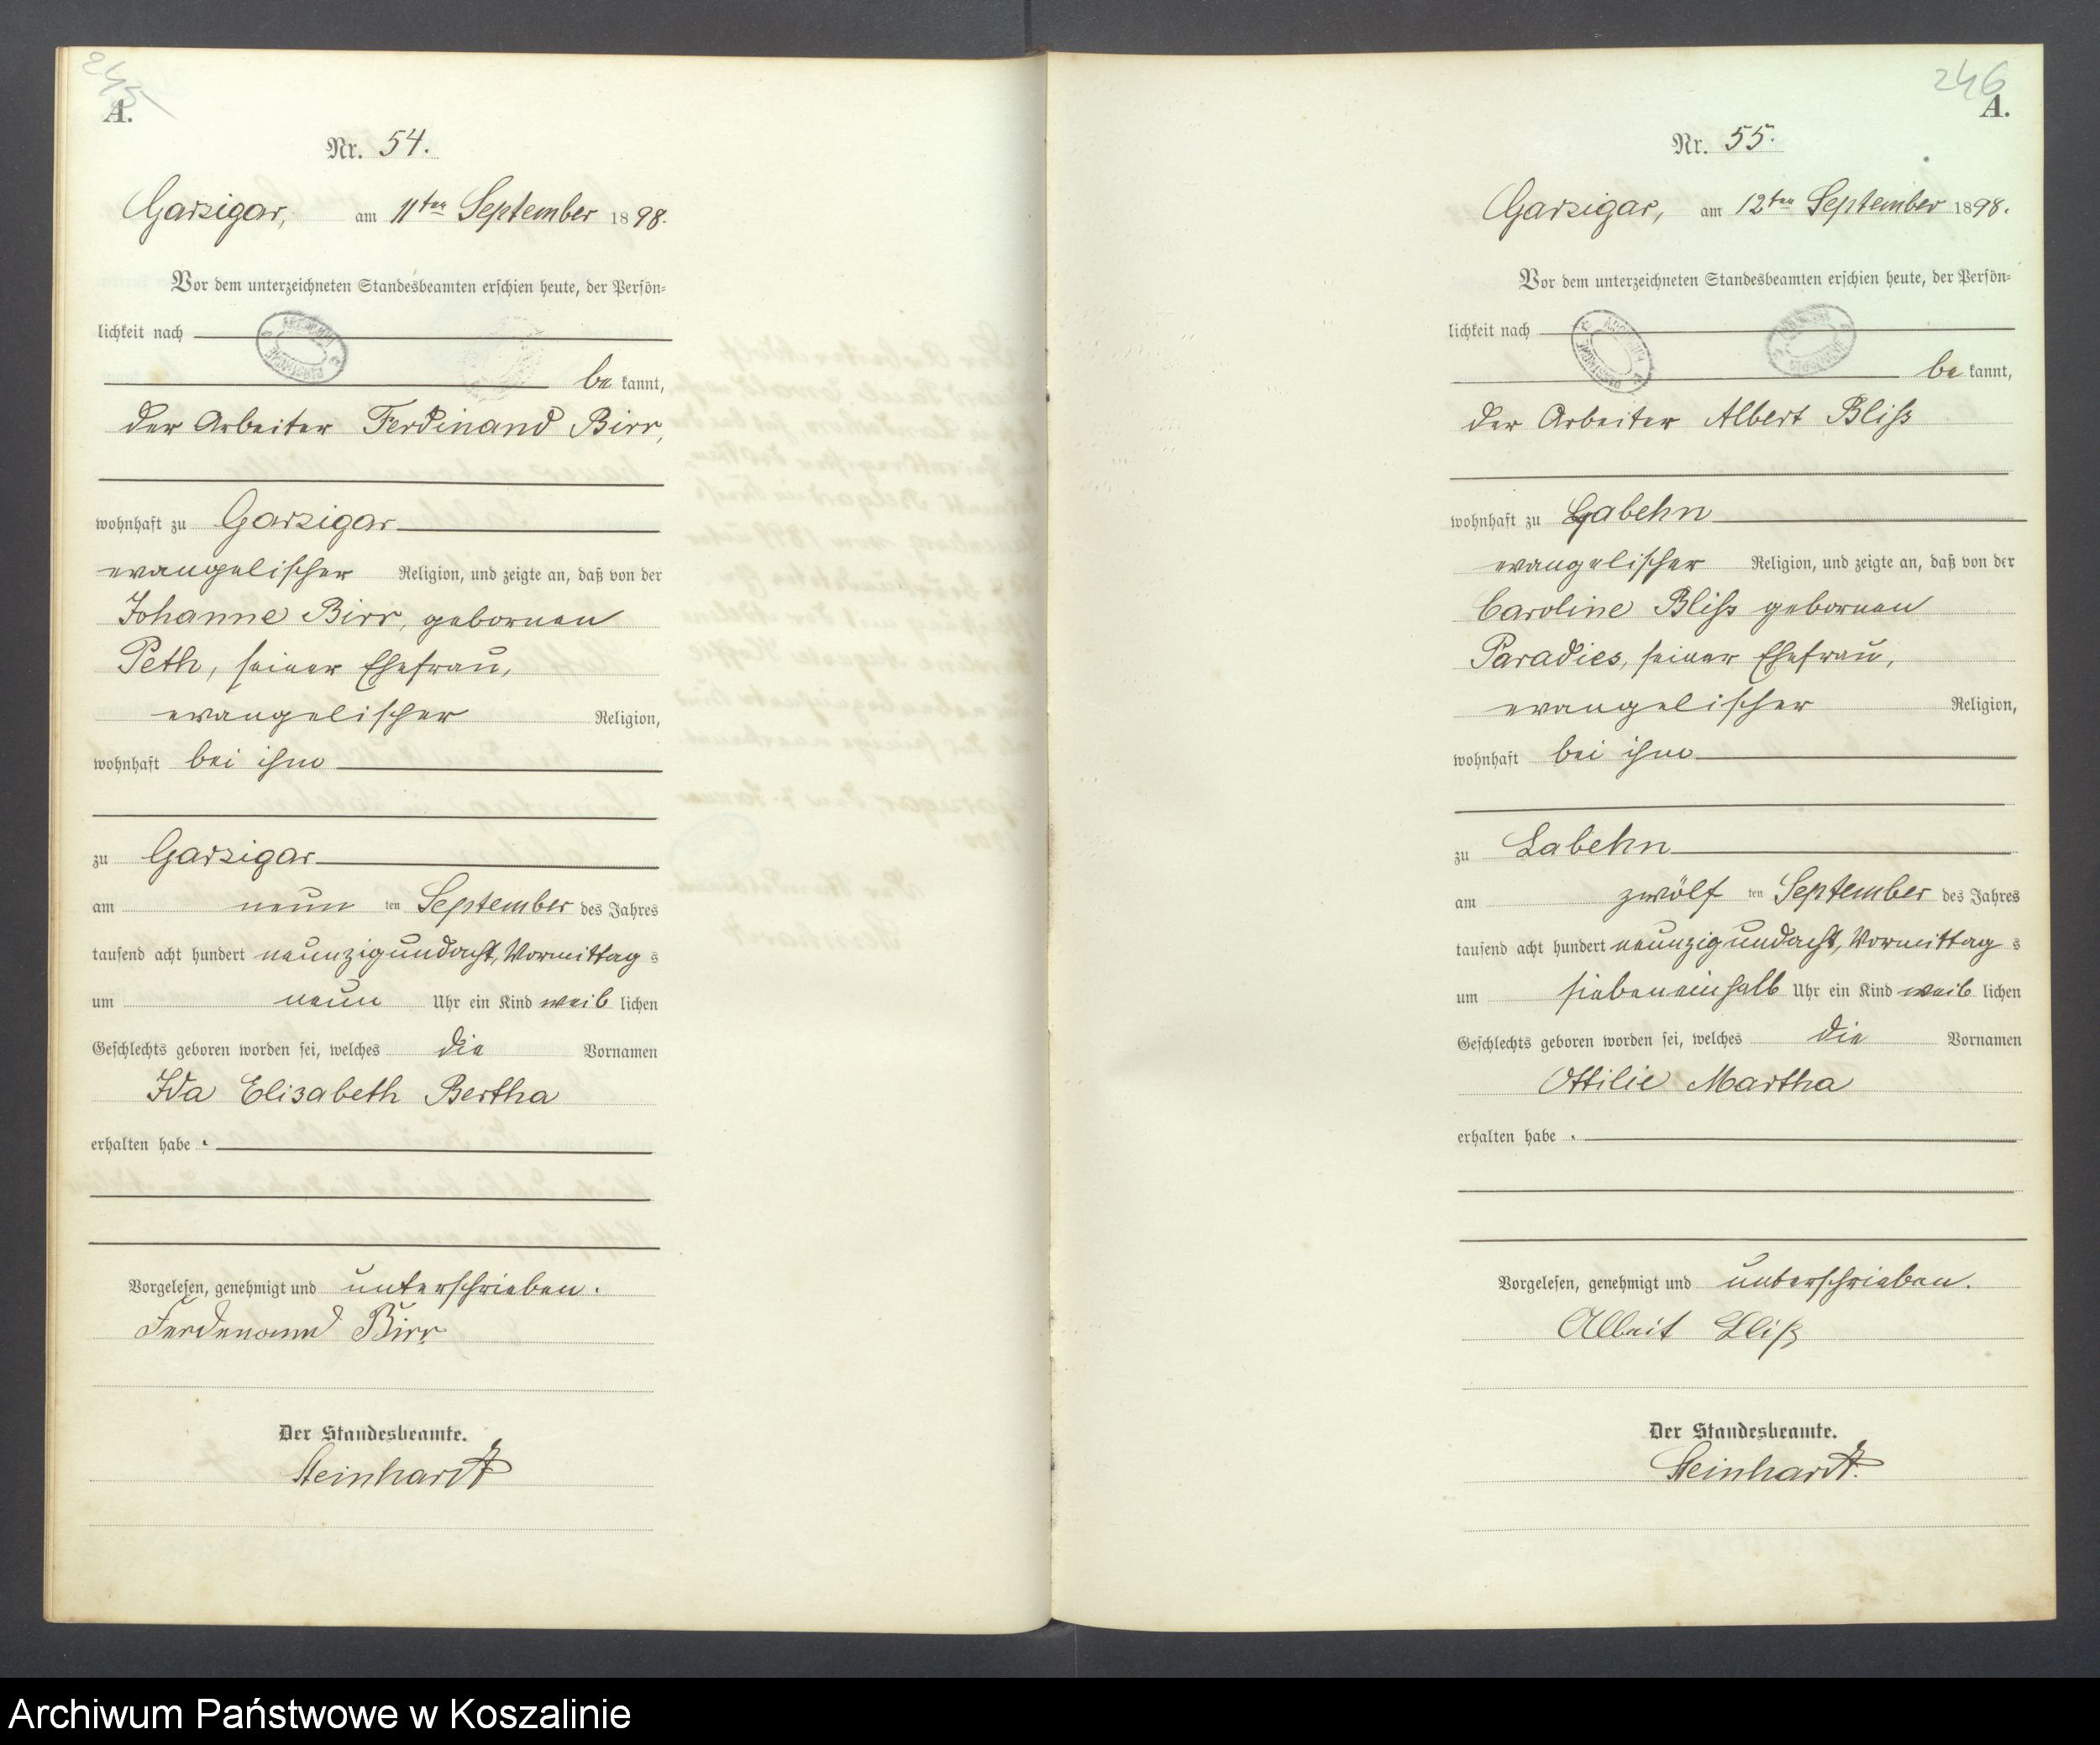 245
A.
Nr. 54.
Garzigar, am 11ten September 1898.
Vor dem unterzeichneten Standesbeamten erschien heute, der Persön-
lichkeit nach
be kannt,
der Arbeiter Ferdinand Birr,
wohnhaft zu Garzigar
evangelischer Religion, und zeigte an, daß von der
Johanne Birr, gebornen
Peth, seiner Ehefrau,
evangelischer Religion,
wohnhaft bei ihm
zu Garzigar
am neun ten September des Jahres
tausend acht hundert neunzig und acht, Vormittag s
um neun Uhr ein Kind weib lichen
Geschlechts geboren worden sei, welches die Vornamen
Ida Elisabeth Bertha
erhalten habe.
Vorgelesen, genehmigt und unterschrieben.
Ferdenannd Birr
Der Standesbeamte.
Steinhardt
246
A.
Nr. 55.
Garzigar, am 12ten September 1898.
Vor dem unterzeichneten Standesbeamten erschien heute, der Persön-
lichkeit nach
be kannt,
der Arbeiter Albert Bliß
wohnhaft zu Labehn
evangelischer Religion, und zeigte an, daß von der
Caroline Bliß gebornen
Paradies, seiner Ehefrau,
evangelischer Religion,
wohnhaft bei ihm
zu Labehn
am zwölf ten September des Jahres
tausend acht hundert neunzig und acht, Vormittag s
um siebeneinhalb Uhr ein Kind weib lichen
Geschlechts geboren worden sei, welches die Vornamen
Ottilie Martha
erhalten habe.
Vorgelesen, genehmigt und unterschrieben.
Albert Bliß
Der Standesbeamte.
Steinhardt.
Archiwum Państwowe w Koszalinie